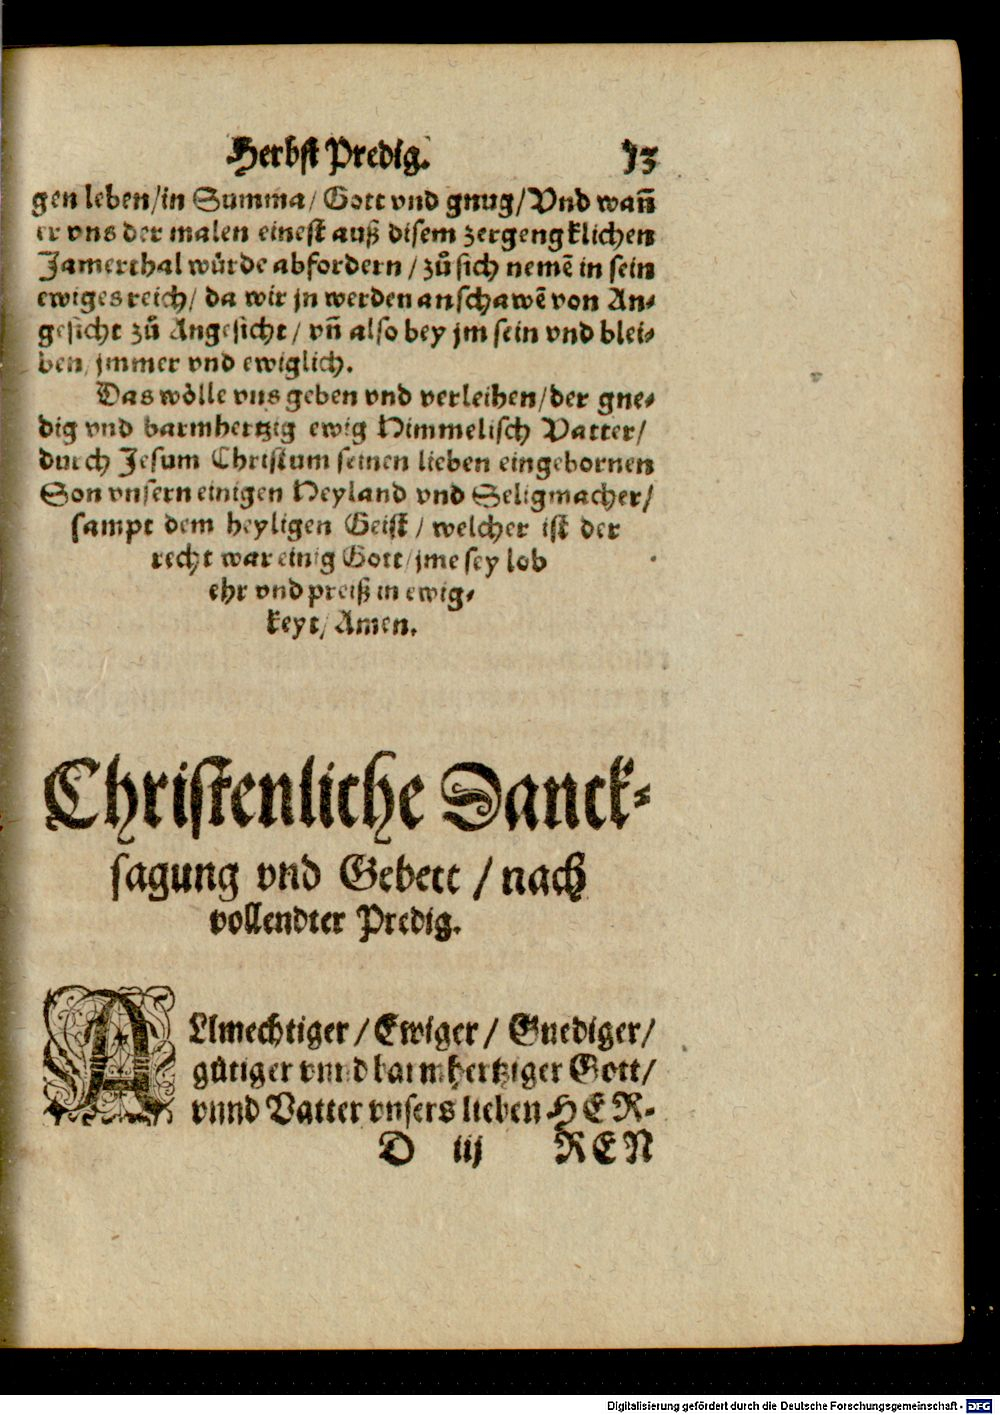 Herbst Predig. 73
gen leben/in Summa/ Gott vnd gnug/Vnd wañ
er vns der malen einest auß disem zergengklichen
Jamerthal wůrde abfordern / zů sich nemẽ in sein
ewiges reich/ da wir jn werden anschawẽ von An-
gesicht zů Angesicht/ vñ also bey jm sein vnd blei-
ben/ jmmer vnd ewiglich.
Das wölle vns geben vnd verleihen/der gne-
dig vnd barmhertzig ewig Himmelisch Vatter/
durch Jesum Christum seinen lieben eingebornen
Son vnsern einigen Heyland vnd Seligmacher/
sampt dem heyligen Geist / welcher ist der
recht war einig Gott/jme sey lob
ehr vnd preiß in ewig-
keyt/ Amen.
Christenliche Danck-
sagung vnd Gebett / nach
vollendter Predig.
ALlmechtiger / Ewiger / Gnediger/
gütiger vnnd barmhertziger Gott/
vnnd Vatter vnsers lieben HER-
D iij REN
Digitalisierung gefördert durch die Deutsche Forschungsgemeinschaft - DFG